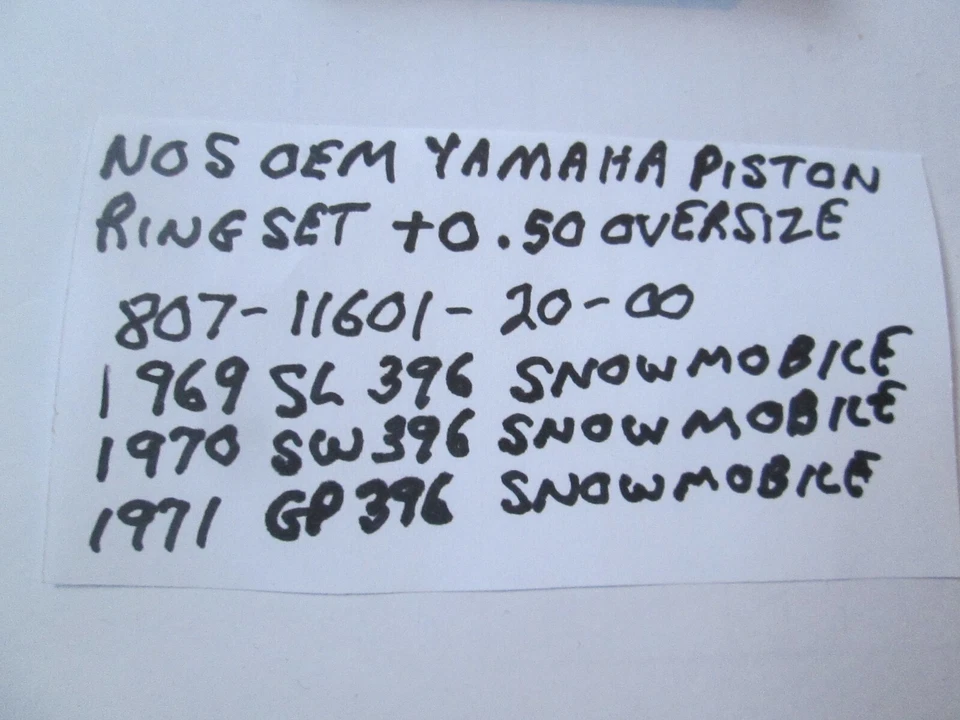 NOS OEM YAMAHA PISTON
RING SET +0.50 OVERSIZE
807-11601-20-00
1969 SL 396 SNOWMOBILE
1970 SW 396 SNOWMOBILE
1971 GP 396 SNOWMOBILE